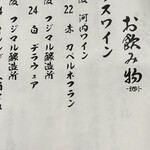 お飲み物
スワイン
阪 河内ワイン
22 赤 カベルネフラン
阪 フジマル醸造所
24 白 デラウェア
阪 フジマル醸造所
フジマル醸造所